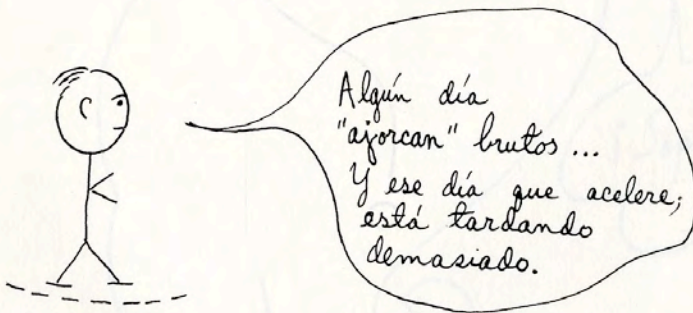 Algún día
"ajorcan" brutos...
Y ese día que acelere;
está tardando
demasiado.